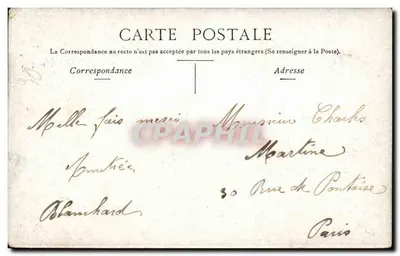 CARTE POSTALE
La Correspondance au recto n'est pas acceptée par tous les pays étrangers (Se renseigner à la Poste).
Correspondance
Adresse
Mille fois merci
Amitiés
Blanchard
Monsieur Charles
Martine
30 Rue de Pontoise
Paris
CPARAMA